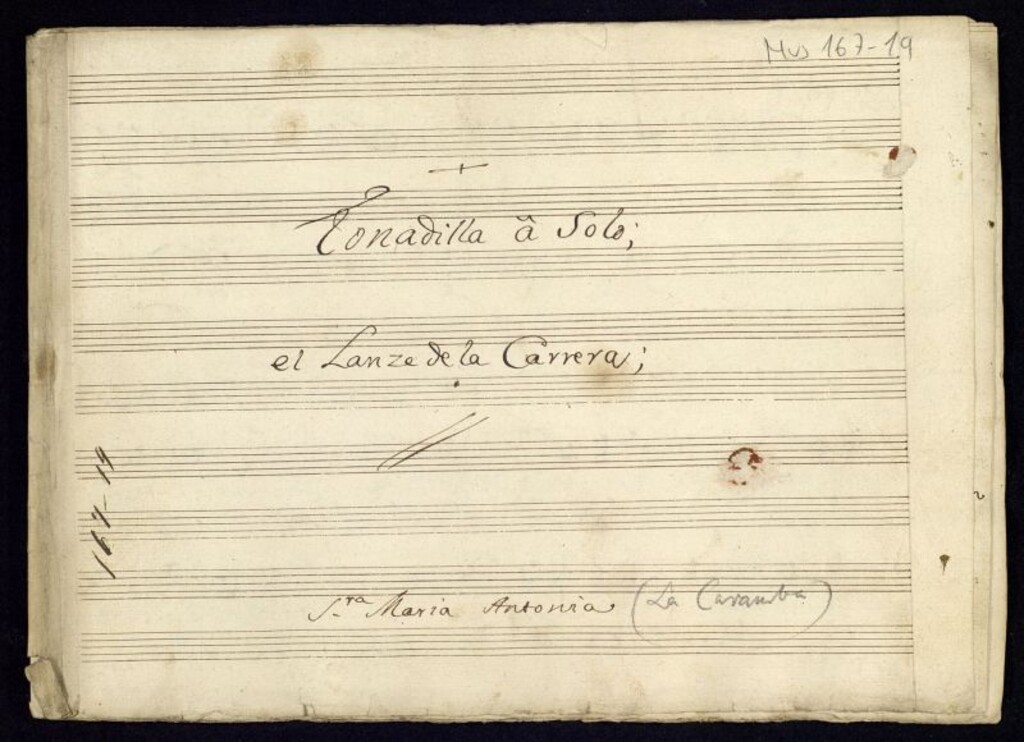 Mus 167-19
+
Tonadilla â Solo;
el Lanze de la Carrera;
167-19
S.ra Maria Antonia (La Caramba)